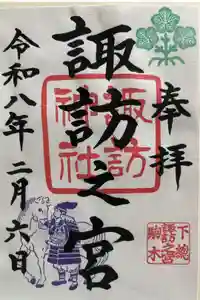 奉拝
諏訪之宮
諏訪
神社
令和八年二月六日
下総
諏訪之宮
駒木